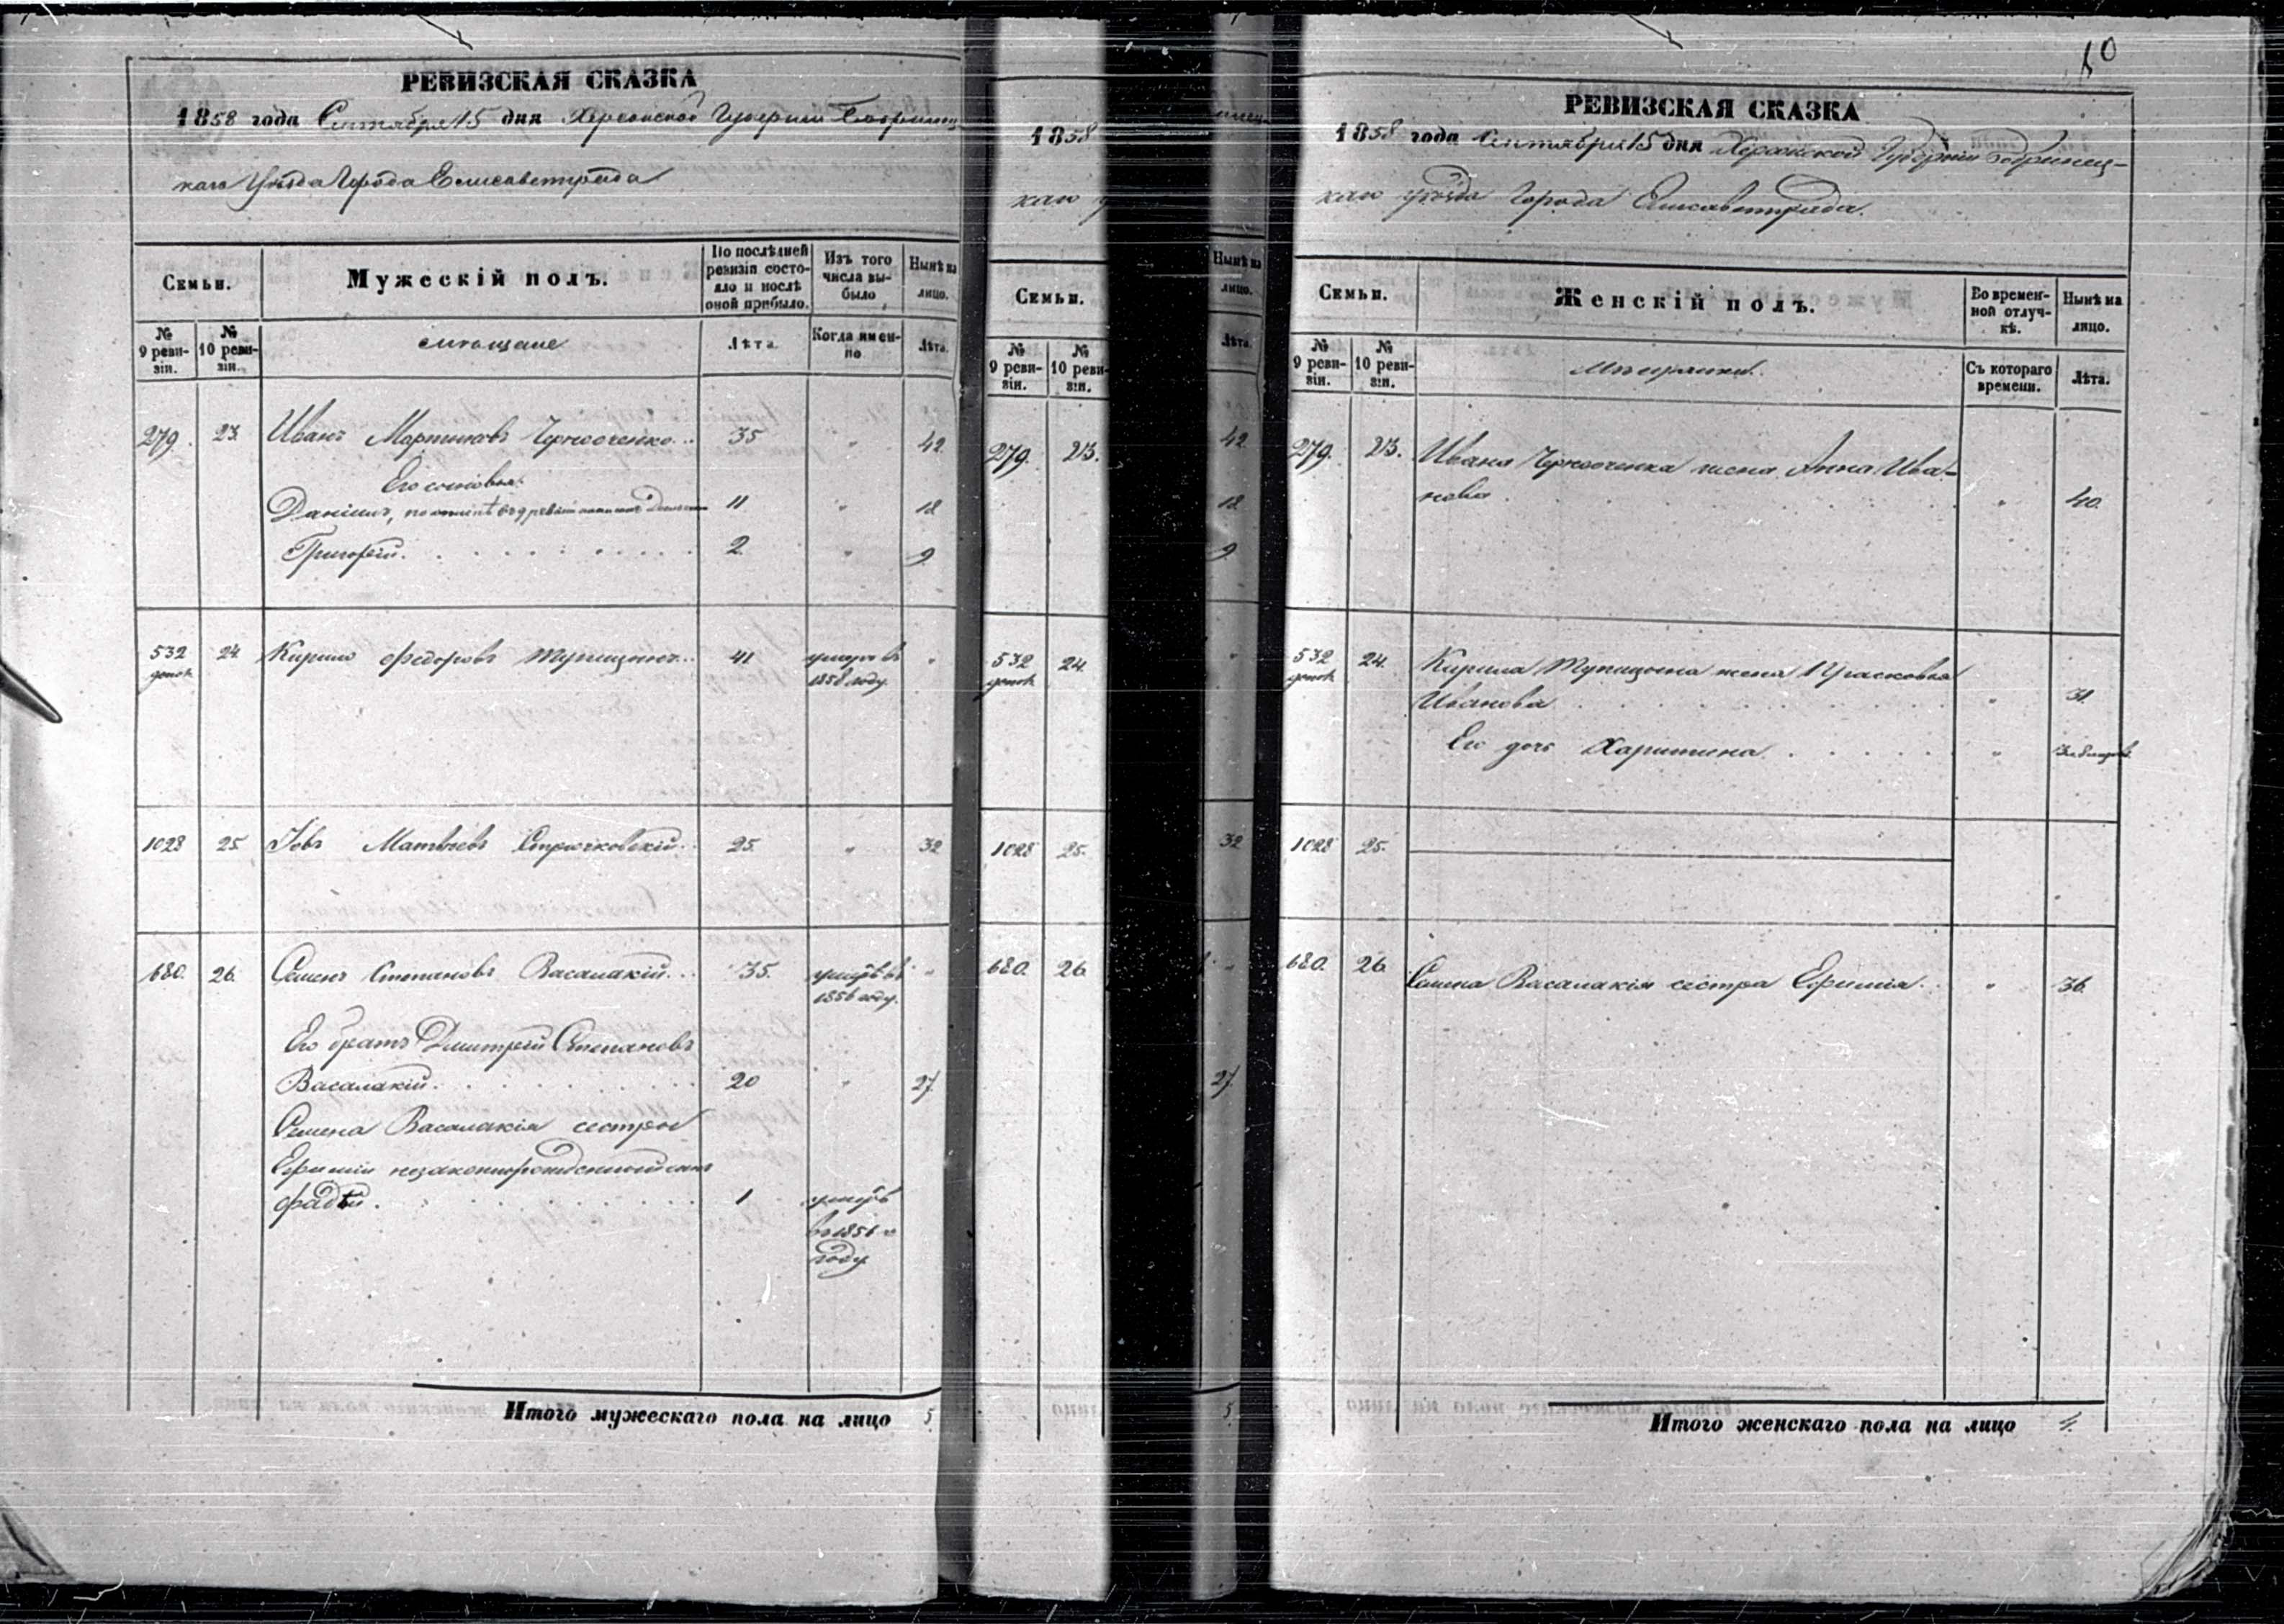 РЕВИЗСКАЯ СКАЗКА
1858 года Сентября 15 дня Херсонской Губернии Бобринец-
каго Уезда Города Елисаветграда
Семьи.
Мужескій полъ.
По послѣдней ревизіи состояло и послѣ оной прибыло.
Изъ того числа выбыло
Нынѣ на лицо.
№ 9 ревизіи.
№ 10 ревизіи.
мѣщане
Лѣта.
Когда именно
Лѣта.
279. 23. Иванъ Мартиновъ 35 " 42
Его сыновья:
Даніилъ, 11 " 18
Григорій. 2 " 9
532 24 Кирило Федоровъ Тупицынъ 41 умеръ въ "
1858 году.
1028 25 Іовъ Матвѣевъ Стрючковскій 25 " 32
680. 26. Семенъ Степановъ Васалакій 35. умеръ въ "
1856 году.
Его братъ Дмитрій Степановъ
Васалакій. 20 " 27
Семена Васалакія сестры
Ефиміи незаконнорожденный сынъ
Фадѣй. 1 умеръ
въ 1856-м
году
Итого мужескаго пола на лицо 5
1858
каго у
Семьи.
№ 9 ревизіи.
№ 10 ревизіи.
279. 23.
532 24.
1028 25.
680. 26
Нынѣ на лицо.
Лѣта.
42
18
9
32
27
5
10
РЕВИЗСКАЯ СКАЗКА
1858 года Сентября 15 дня Херсонской Губерніи Бобринец-
каго уѣзда Города Елисаветграда.
Семьи.
Женскій полъ.
Во временной отлучкѣ.
Нынѣ на лицо.
№ 9 ревизіи.
№ 10 ревизіи.
Мѣщанки.
Съ котораго времени.
Лѣта.
279. 23. Ивана жена Анна Ива-
нова " 40
532 24. Кирила Тупицына жена Прасковья
Иванова " 31.
Его дочь Харитина "
1028 25.
680. 26 Семена Васалакія сестра Ефимія. " 36
Итого женскаго пола на лицо 4.